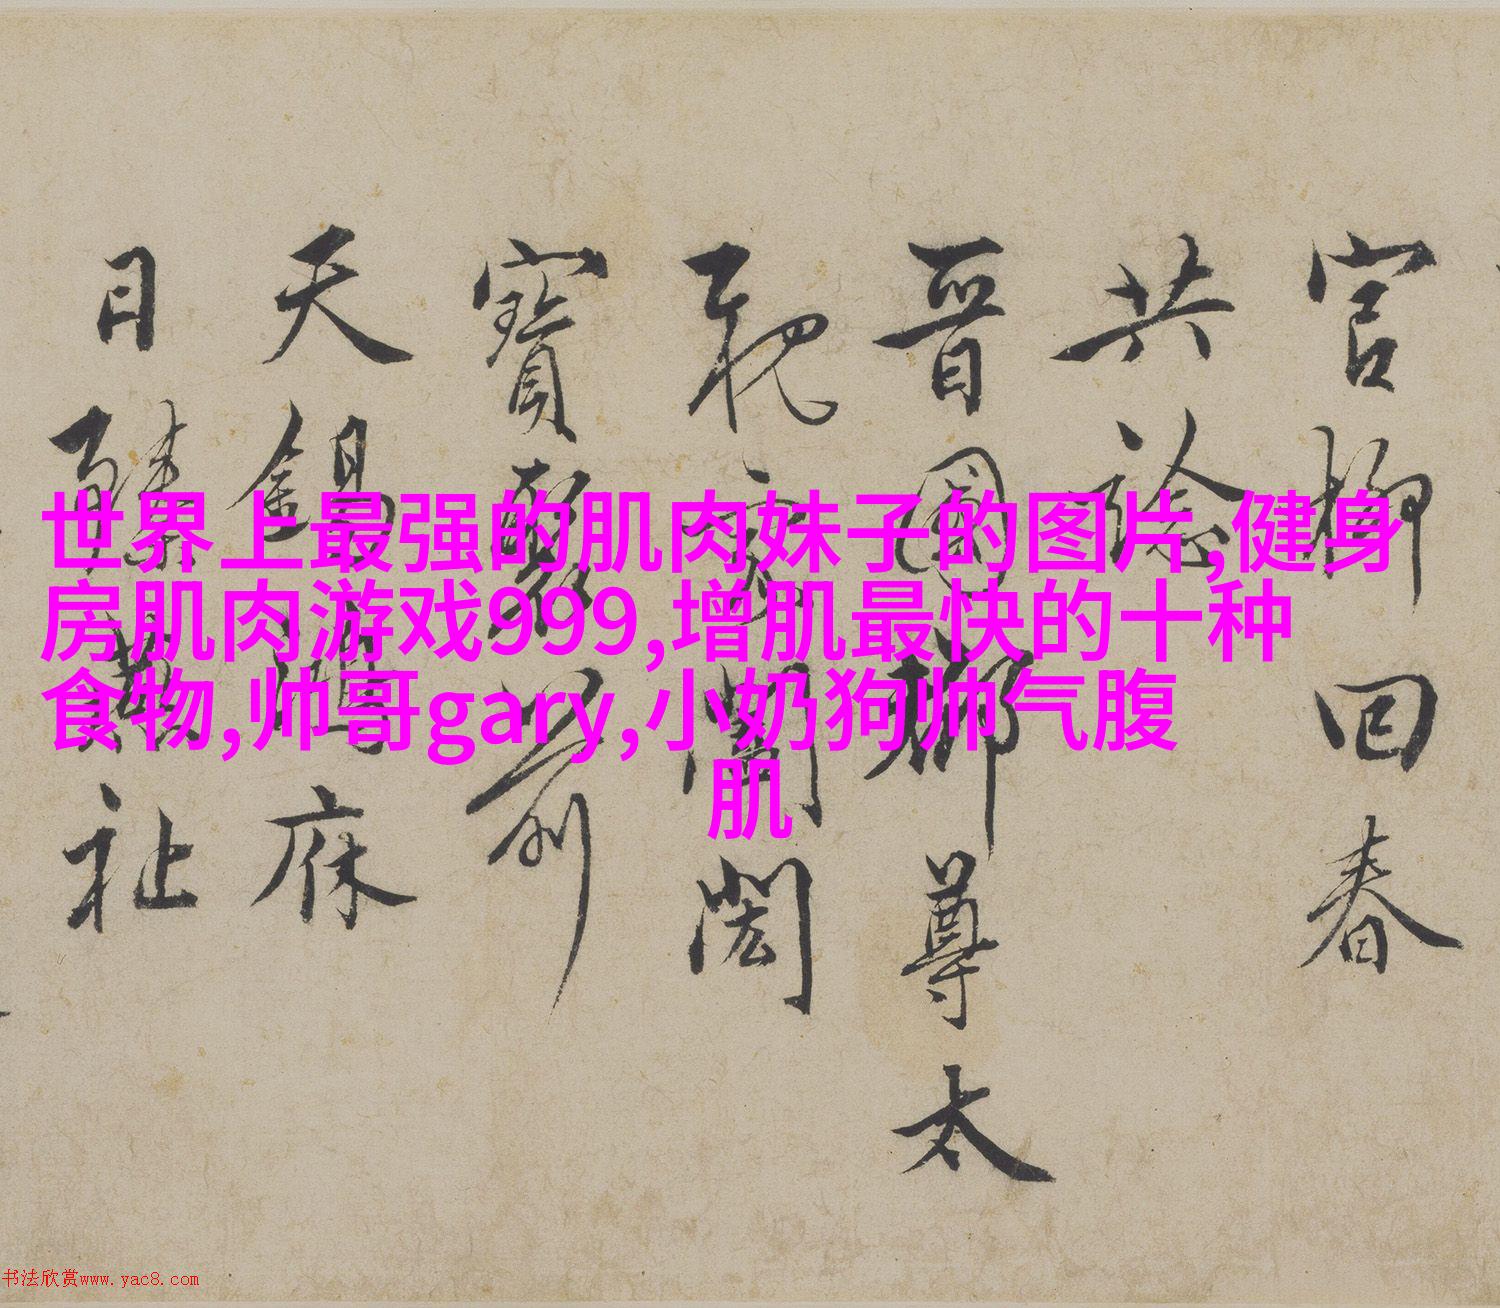 世界上最强的肌肉妹子的图片,健身
房肌肉游戏999,增肌最快的十种
食物,帅哥gary,小奶狗帅气腹
肌
官柳回春
共諗
晉國鄉尊太
閎
寶前
天錫鴻庥
日臻祉
书法欣赏www.yac8.com